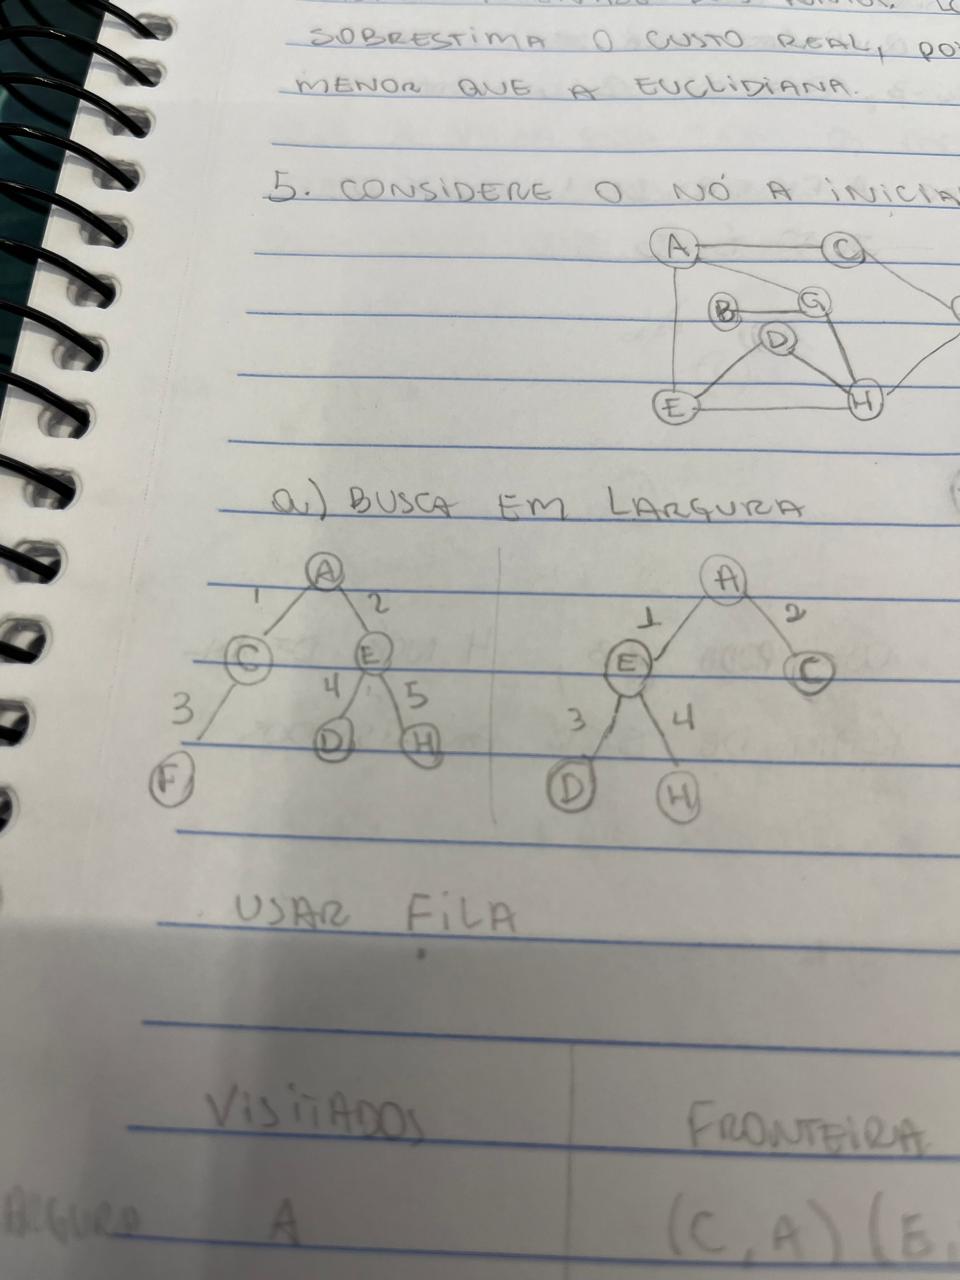 SOBRESTIMA O CUSTO REAL,
MENOR QUE A EUCLIDIANA.
5. CONSIDERE O NÓ A
A C
B G
D
E H
a) BUSCA EM LARGURA
A A
1 2 1 2
C E E C
3 4 5 3 4
F D H D H
USAR FILA
VISITADOS FRONTEIRA
A (C, A) (E,